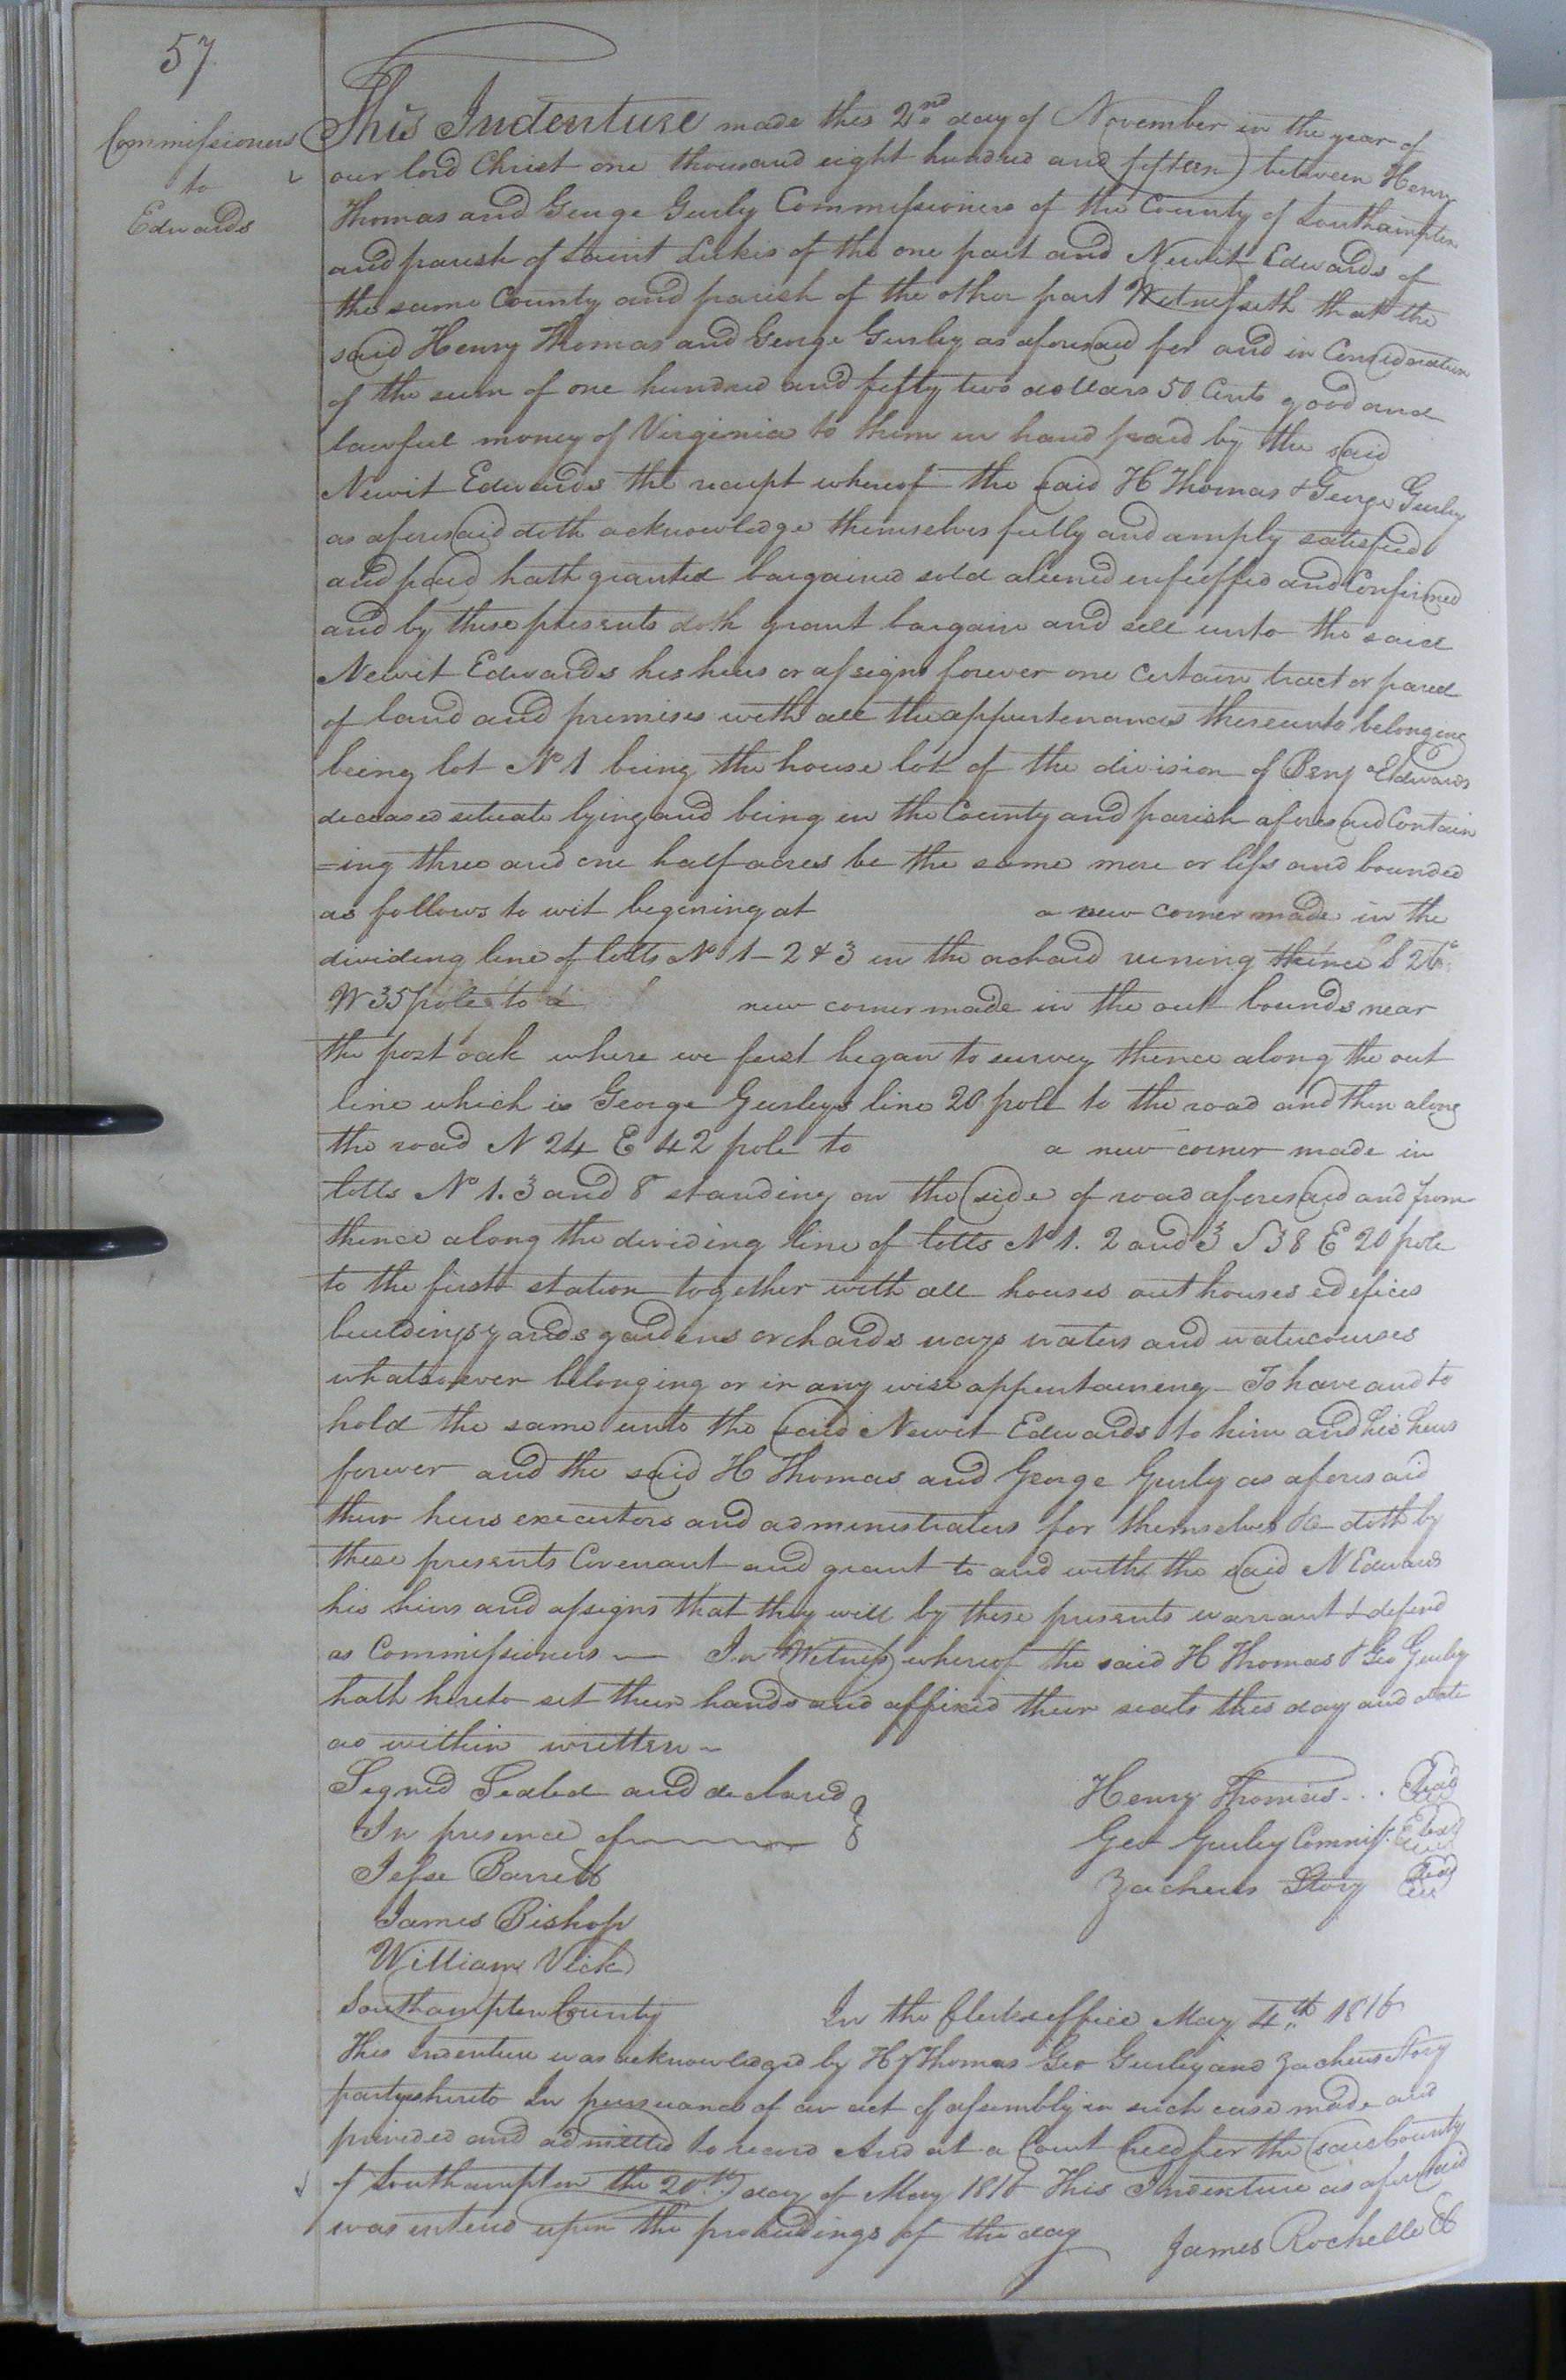 57
Commissioners
to
Edwards
This Indenture made this 2nd day of November in the year of
our lord Christ one thousand eight hundred and fifteen between Henry
Thomas and George Gurley Commissioners of the County of Southampton
and parish of Saint Lukes of the one part and Newit Edwards of
the same County and parish of the other part Witnesseth that the
said Henry Thomas and George Gurley as aforesaid for and in Consideration
of the sum of one hundred and fifty two dollars 50 Cents good and
lawful money of Virginia to them in hand paid by the said
Newit Edwards the receipt whereof the said H Thomas & George Gurley
as aforesaid doth acknowledge themselves fully and amply satisfied
and paid hath granted bargained sold aliened enfeoffed and Confirmed
and by these presents doth grant bargain and sell unto the said
Newit Edwards his heirs or assigns forever one Certain tract or parcel
of land and premises with all the appurtenances thereunto belonging
being lot No 1 being the house lot of the division of Benj Edwards
deceased situate lying and being in the County and parish aforesaid Contain
=ing three and one half acres be the same more or less and bounded
as follows to wit begining at a new corner made in the
dividing line of lotts No 1-2 & 3 in the orchard runing thence S 26
W 35 pole to a new corner made in the out bounds near
the post oak where we first began to survey thence along the out
line which is George Gurleys line 20 pole to the road and then along
the road N 24 E 42 pole to a new corner made in
lotts No 1. 3 and 8 standing on the side of road aforesaid and from
thence along the dividing line of lotts No 1. 2 and 3 S 38 E 20 pole
to the first station together with all houses out houses edefices
buildings yards gardens orchards ways waters and watercourses
whatsoever belonging or in any wise appertaining - To have and to
hold the same unto the said Newit Edwards to him and his heirs
forever and the said H Thomas and George Gurley as aforesaid
their heirs executors and administrators for themselves &c doth by
these presents Covenant and grant to and with the said N Edwards
his heirs and assigns that they will by these presents warrant & defend
as Commissioners — In Witness whereof the said H Thomas & Geo Gurley
hath hereto set their hands and affixed their seals this day and date
as within written -
Signed Sealed and declared
In presence of
Jesse Barrett
James Bishop
William Vick
Henry Thomas... Seal
Geo Gurley Commiss. Seal
Zacheus Story Seal
Southampton County In the Clerks office May 4th 1816
This Indenture was acknowledged by Hy Thomas Geo Gurley and Zacheus Story
partys hereto In pursuance of an act of assembly in such case made and
provided and admitted to record And at a Court held for the said County
of Southampton the 20th day of May 1816 This Indenture as aforesaid
was enterd upon the proceedings of the day
James Rochelle CC